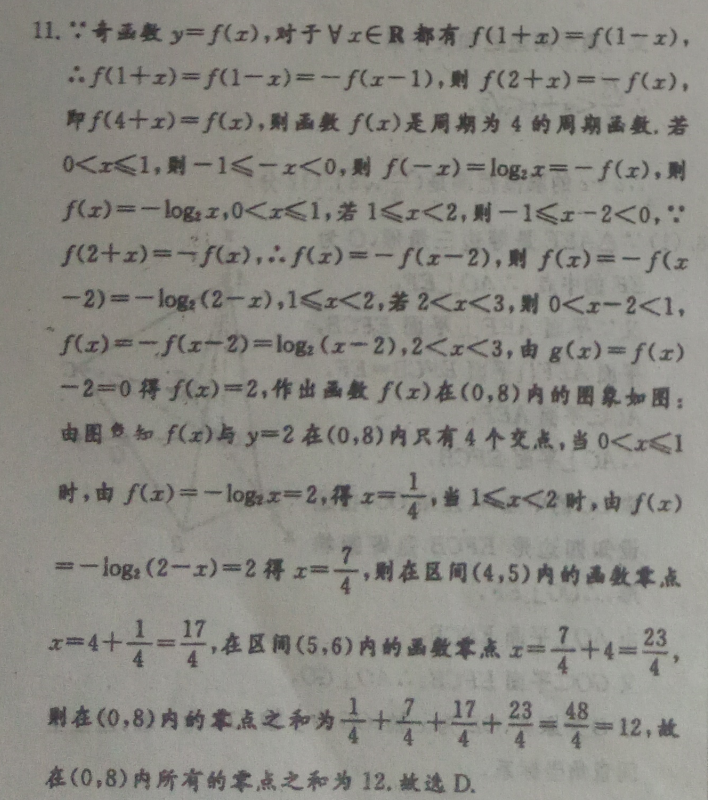 11. ∵奇函数 y=f(x),对于∀x∈R 都有 f(1+x)=f(1-x),
∴f(1+x)=f(1-x)=-f(x-1),则 f(2+x)=-f(x),
即f(4+x)=f(x),则函数 f(x)是周期为 4 的周期函数. 若
0<x≤1,则-1≤-x<0,则 f(-x)=log₂x=-f(x),则
f(x)=-log₂x,0<x≤1,若 1≤x<2,则-1≤x-2<0,∵
f(2+x)=-f(x),∴f(x)=-f(x-2),则 f(x)=-f(x
-2)=-log₂(2-x),1≤x<2,若 2<x<3,则 0<x-2<1,
f(x)=-f(x-2)=log₂(x-2),2<x<3,由 g(x)=f(x)
-2=0 得 f(x)=2,作出函数 f(x)在(0,8)内的图象如图:
由图 知 f(x)与 y=2 在(0,8)内只有 4 个交点,当 0<x≤1
时,由 f(x)=-log₂x=2,得 x=1/4,当 1≤x<2 时,由 f(x)
=-log₂(2-x)=2 得 x=7/4,则在区间(4,5)内的函数零点
x=4+1/4=17/4,在区间(5,6)内的函数零点 x=7/4+4=23/4,
则在(0,8)内的零点之和为1/4+7/4+17/4+23/4=48/4=12,故
在(0,8)内所有的零点之和为 12. 故选 D.